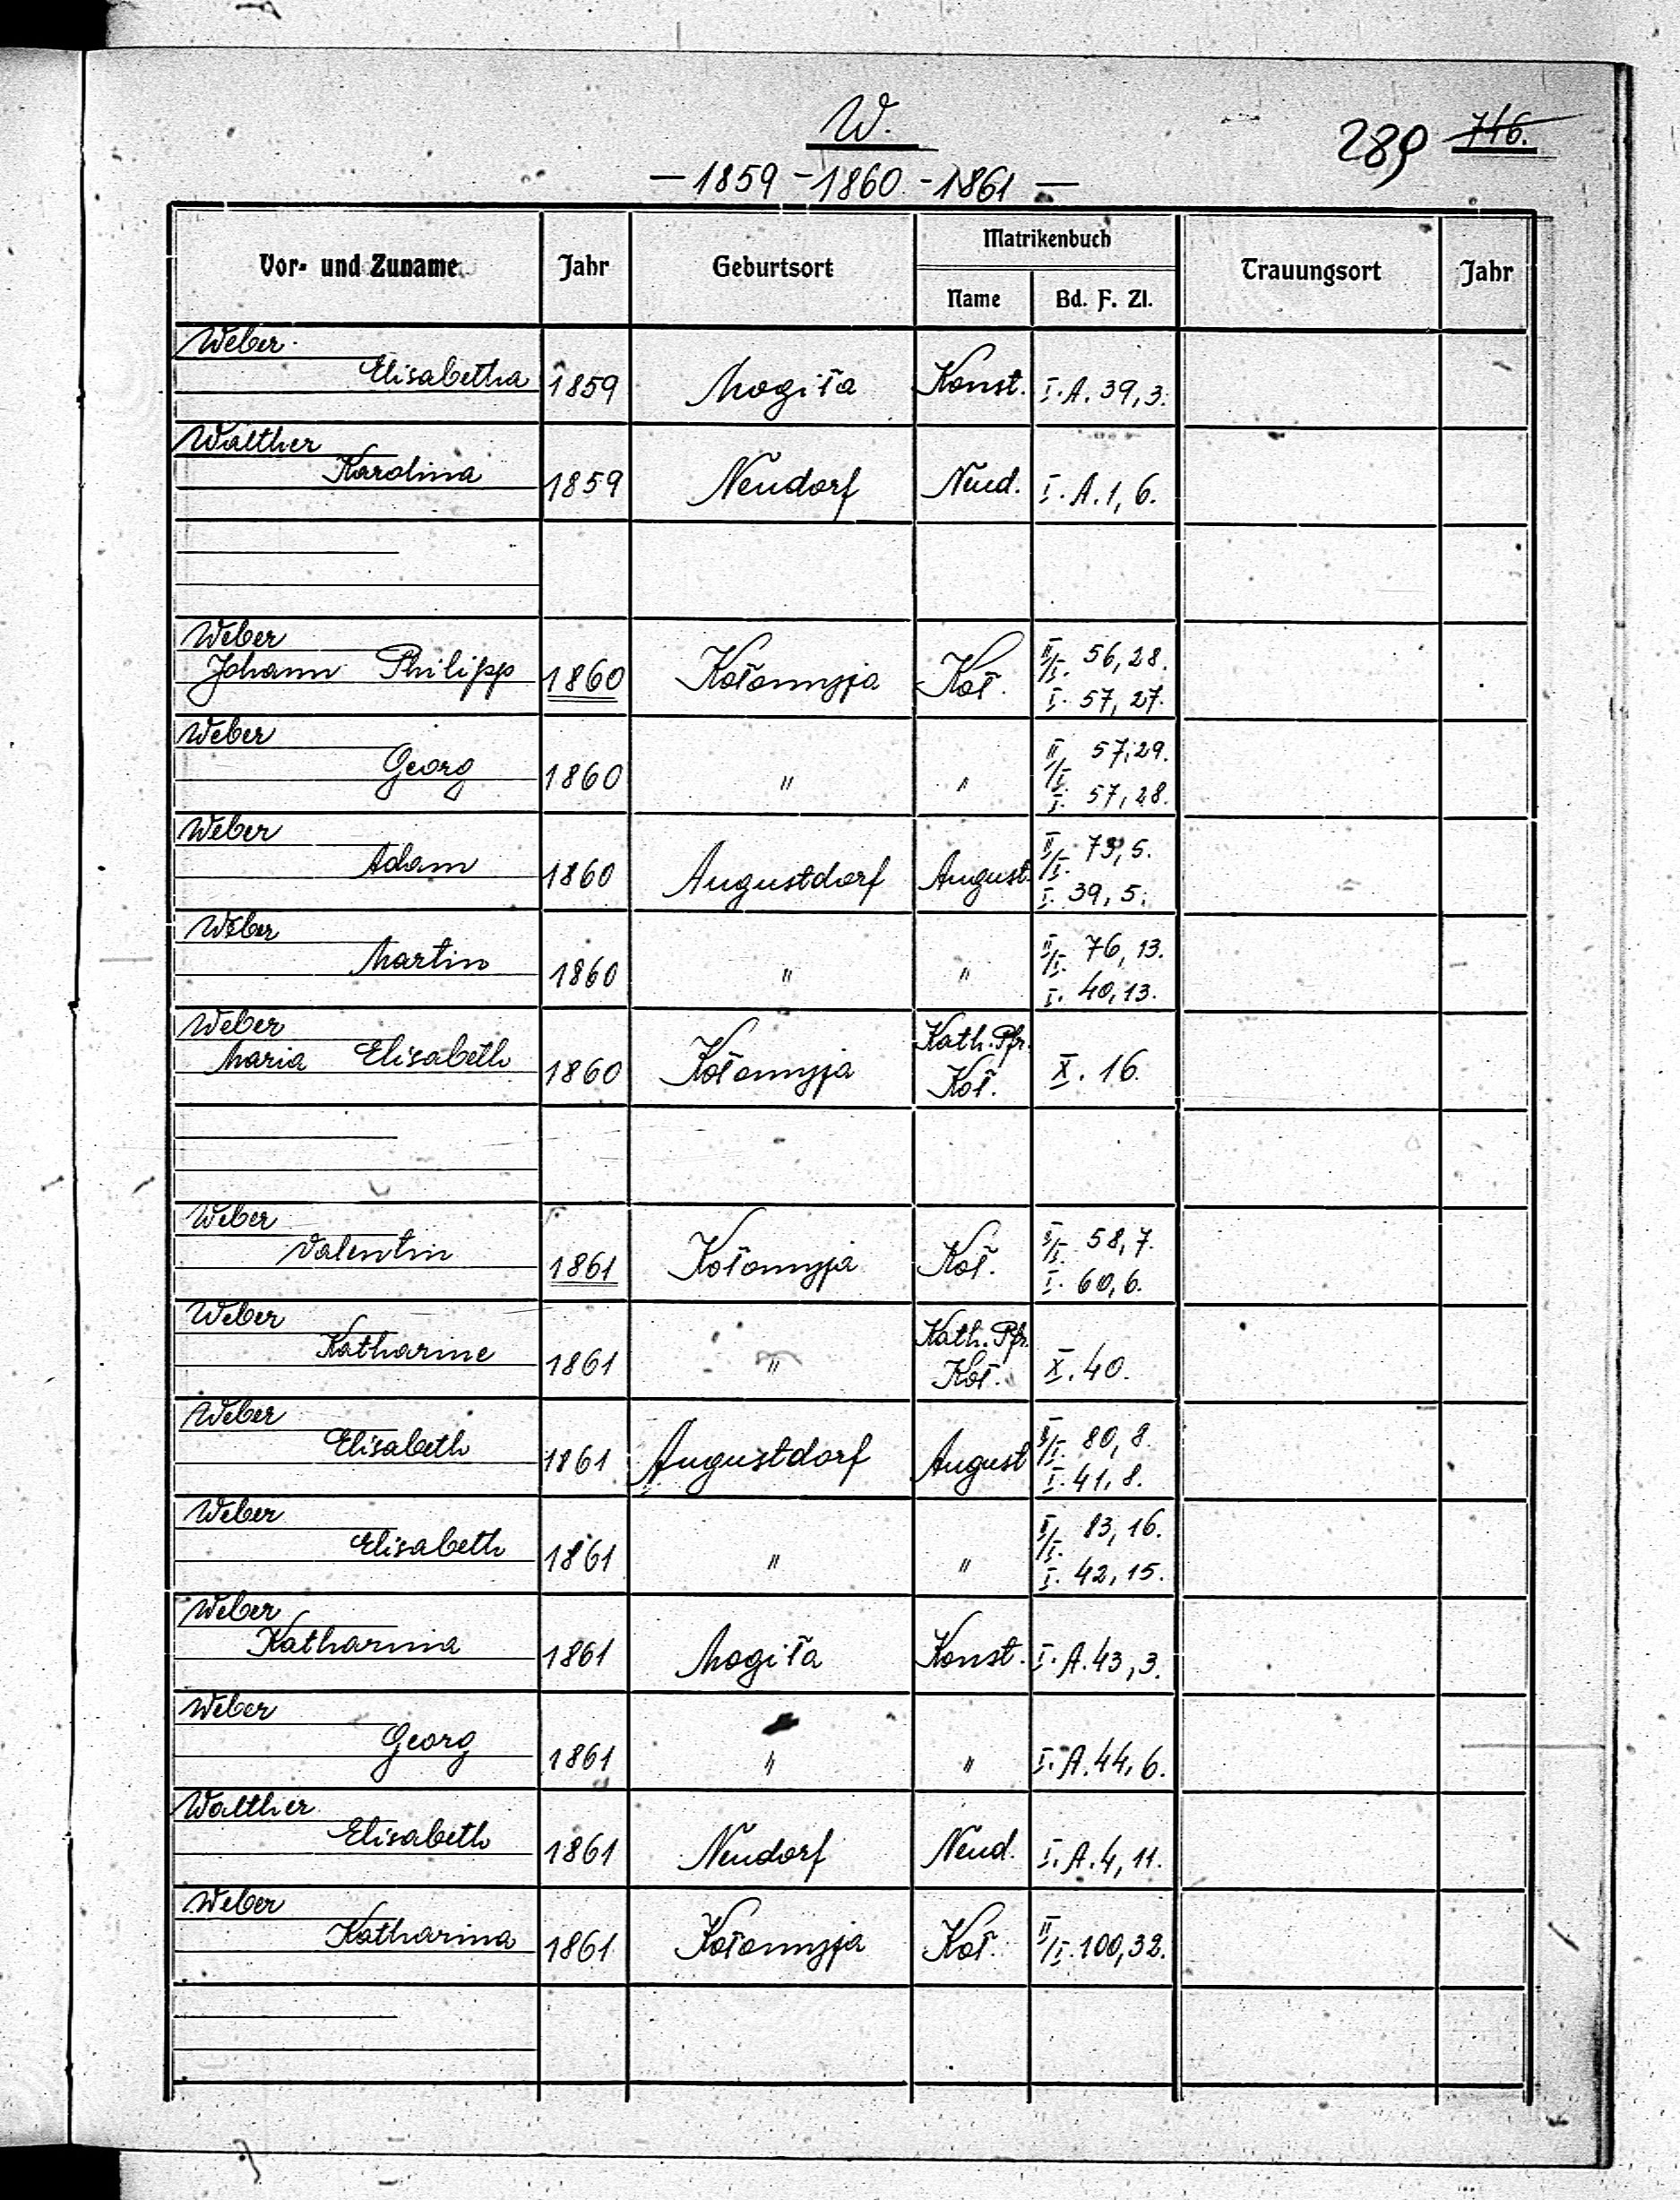 W.
289 716.
— 1859 - 1860 - 1861 —
Vor- und Zuname Jahr Geburtsort Matrikenbuch Trauungsort Jahr
Name Bd. F. Zl.
Weber
Elisabetha 1859 Mogiła Konst. I. A. 39, 3.
Walther
Karolina 1859 Neudorf Neud. I. A. 1, 6.
Weber
Johann Philipp 1860 Kołomyja Koł. II/I. 56, 28.
I. 57, 27.
Weber
Georg 1860 " " II/I. 57, 29.
I. 57, 28.
Weber
Adam 1860 Augustdorf August. II/I. 73, 5.
I. 39, 5.
Weber
Martin 1860 " " II/I. 76, 13.
I. 40, 13.
Weber
Maria Elisabeth 1860 Kołomyja Kath. Pfr. Koł. X. 16.
Weber
Valentin 1861 Kołomyja Koł. II/I. 58, 7.
I. 60, 6.
Weber
Katharine 1861 " Kath. Pfr. Koł. X. 40.
Weber
Elisabeth 1861 Augustdorf August II/I. 80, 8.
I. 41, 8.
Weber
Elisabeth 1861 " " II/I. 83, 16.
I. 42, 15.
Weber
Katharina 1861 Mogiła Konst. I. A. 43, 3.
Weber
Georg 1861 " " I. A. 44, 6.
Walther
Elisabeth 1861 Neudorf Neud. I. A. 4, 11.
Weber
Katharina 1861 Kołomyja Koł. II/I. 100, 32.